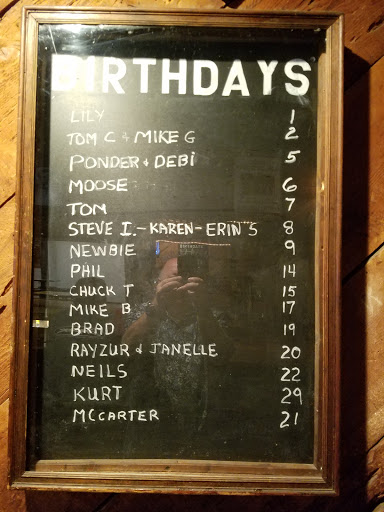 BIRTHDAYS
LILY 1
TOM C & MIKE G 2
PONDER & DEBI 5
MOOSE 6
TOM 7
STEVE I.-KAREN-ERIN S 8
NEWBIE 9
PHIL 14
CHUCK T 15
MIKE B 17
BRAD 19
RAYZUR & JANELLE 20
NEILS 22
KURT 29
MCCARTER 21